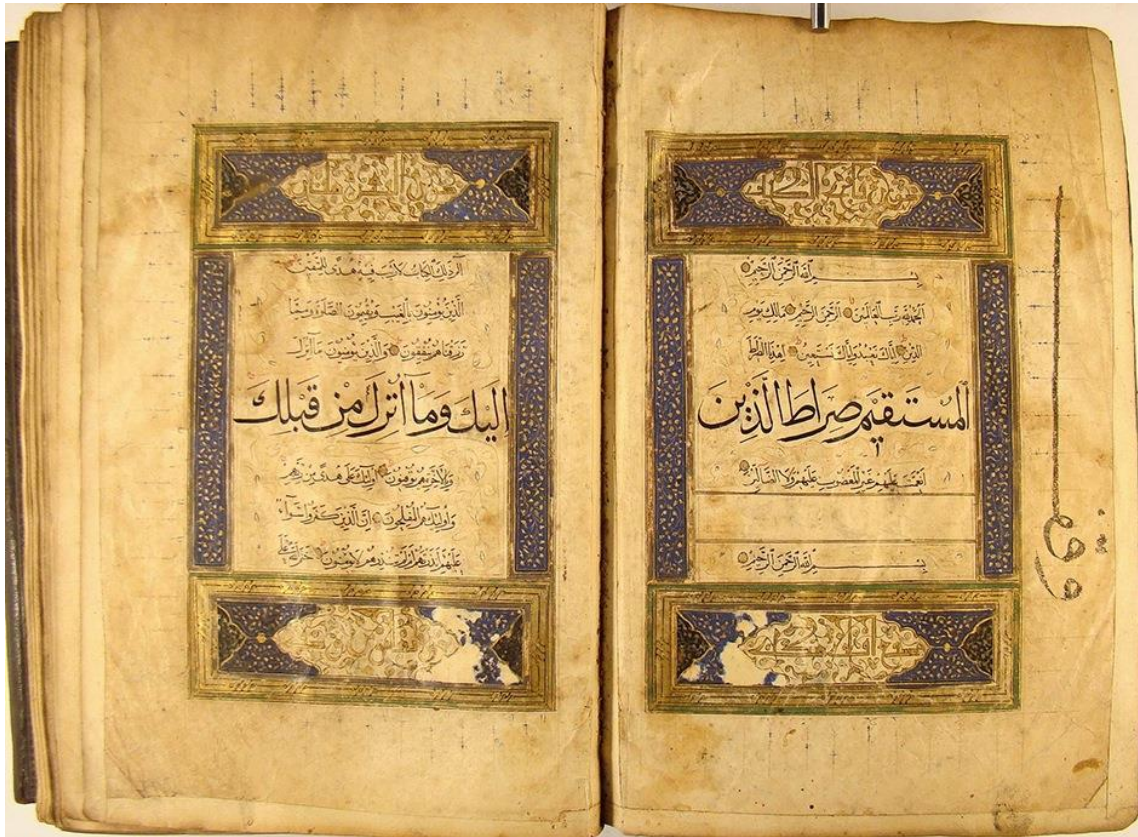 سورة فاتحة الكتاب
بسم الله الرحمن الرحيم
الحمد لله رب العالمين الرحمن الرحيم مالك يوم
الدين اياك نعبد واياك نستعين اهدنا الصراط
المستقيم صراط الذين
انعمت عليهم غير المغضوب عليهم ولا الضالين
بسم الله الرحمن الرحيم
وقف
سورة البقرة
الم ذلك الكتاب لا ريب فيه هدى للمتقين
الذين يؤمنون بالغيب ويقيمون الصلوة ومما
رزقناهم ينفقون والذين يؤمنون بما انزل
اليك وما أنزل من قبلك
وبالآخرة هم يوقنون اولئك على هدى من ربهم
واولئك هم المفلحون ان الذين كفروا سوآء
عليهم أنذرتهم ام لم تنذرهم لا يؤمنون ختم الله على